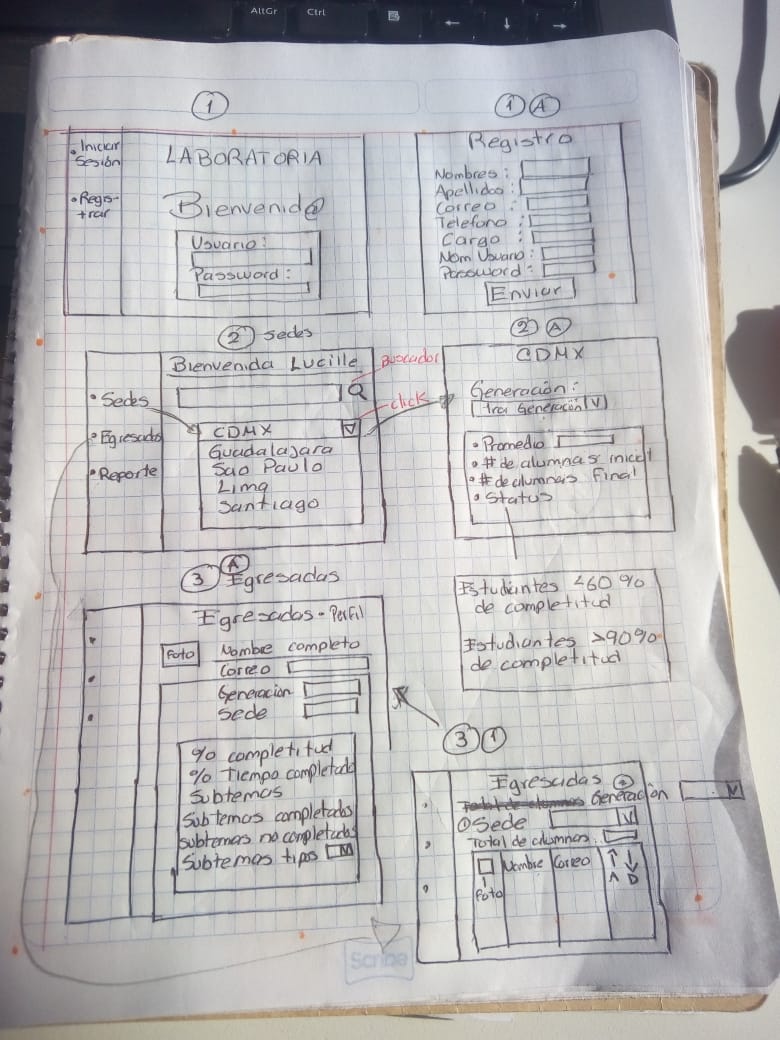 AltGr
Ctrl
1
1 A
• Iniciar
Sesión
• Regis-
trar
LABORATORIA
Bienvenid@
Usuario :
Password :
Registro
Nombres :
Apellidos :
Correo :
Telefono :
Cargo :
Nom Usuario :
Password :
Enviar
2 Sedes
Bienvenida Lucille
Buscador
click
• Sedes
• Egresado
• Reporte
CDMX
Guadalajara
Sao Paulo
Lima
Santiago
2 A
CDMX
Generación :
1ra Generación V
• Promedio
• # de alumnas inicial
• # de alumnas Final
• Status
Estudiantes <60%
de completitud
Estudiantes >90%
de completitud
3 A Egresadas
Egresadas - Perfil
Foto
Nombre completo
Correo
Generación
Sede
% completitud
% Tiempo completado
Subtemas
Subtemas completados
subtemas no completados
Subtemas tipo
3 1
Egresadas
Total de alumnas Generaciòn
① Sede
Total de alumnas
Nombre
Correo
↑ ↓
A D
Foto
Scribe